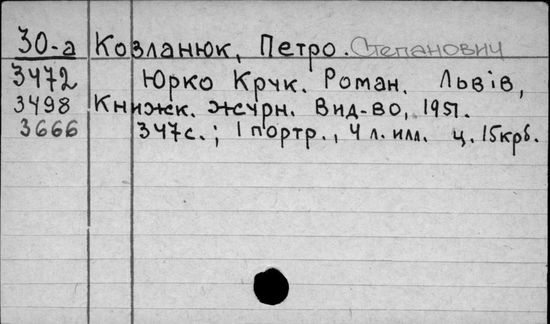 30-а Козланюк, Петро. Степанович
3472 Юрко Крук. Роман. Львів,
3498 Книжк. журн. Вид-во, 1951.
3666 347с.; 1 портр., 4 л. илл. ц. 15крб.